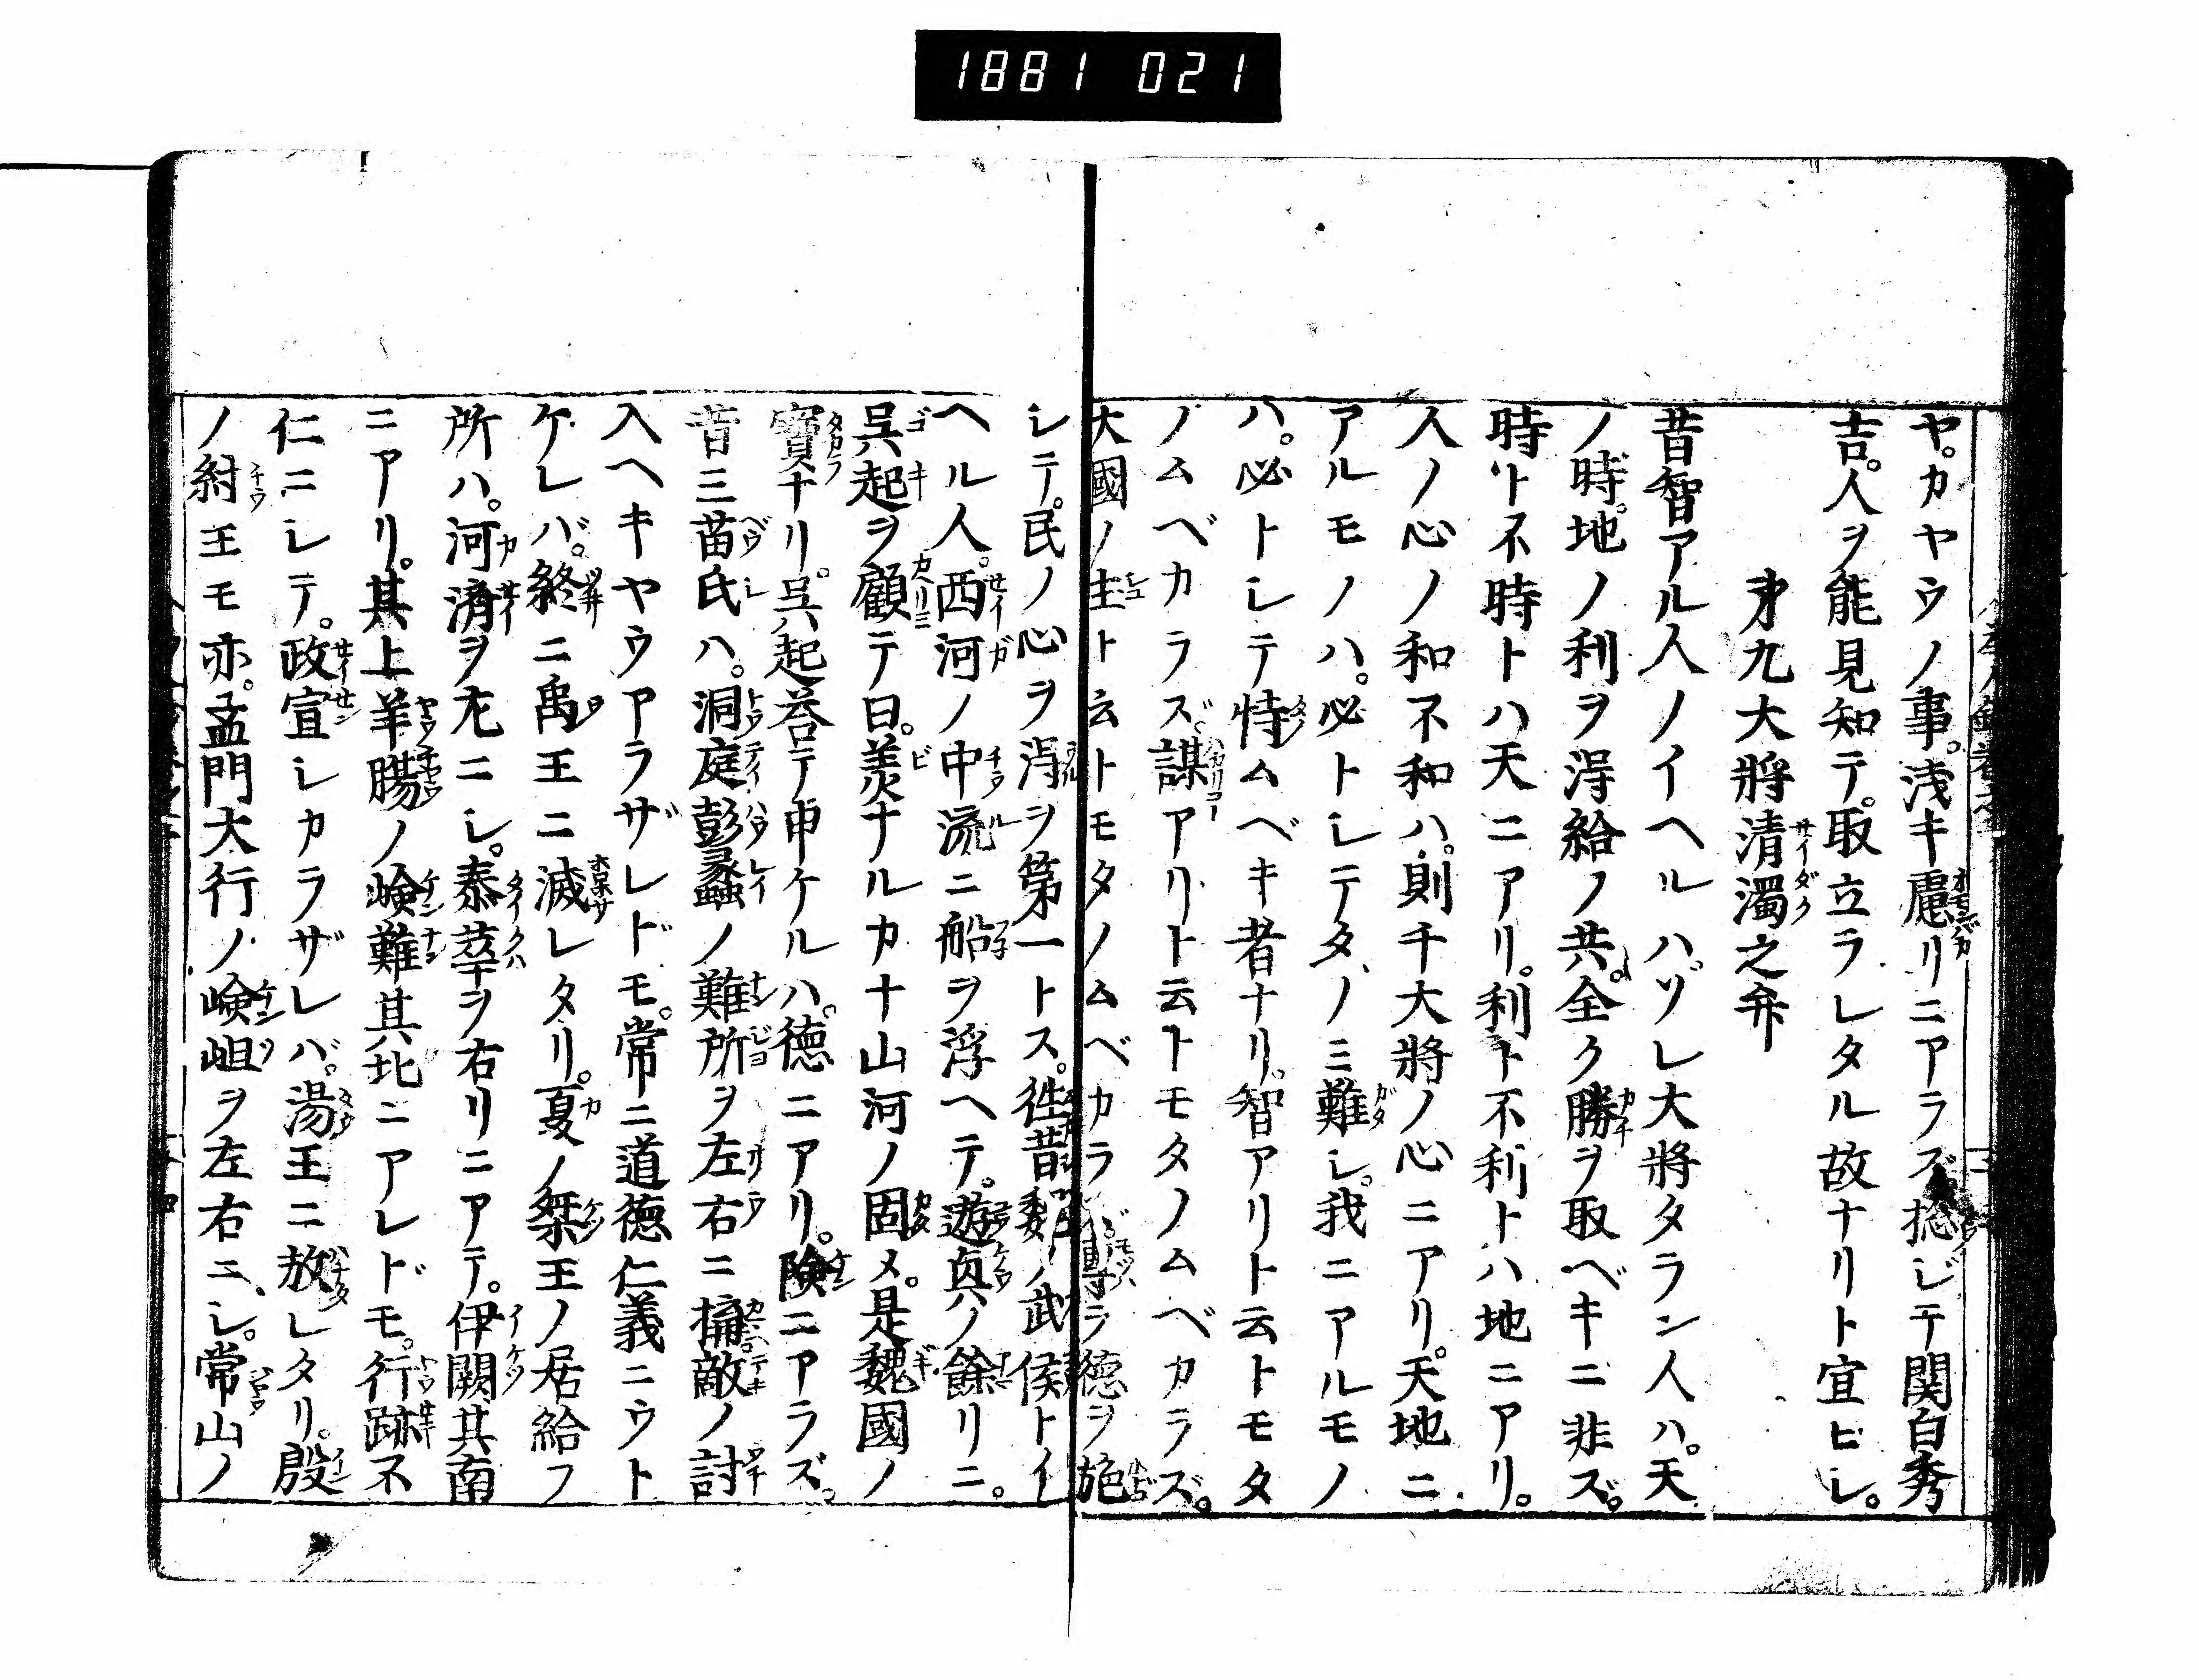 1881 021
ヤ。カヤウノ事。浅キ慮リニアラズ捴ジテ関白秀
吉。人ヲ能見知テ。取立ラレタル故ナリト宜ヒシ。
第九大将清濁之弁
昔智アル人ノイヘルハ。ソレ大将タラン人ハ。天
ノ時。地ノ利ヲ得給ノ共。全ク勝ヲ取ベキニ非ズ。
時ト不時トハ天ニアリ。利ト不利トハ地ニアリ。
人ノ心ノ和不和ハ。則チ大将ノ心ニアリ。天地ニ
アルモノハ。必トシテタノミ難シ。我ニアルモノ
ハ。必トシテ恃ムベキ者ナリ。智アリト云トモタ
ノムベカラズ。謀アリト云トモタノムベカラズ。
大國ノ主ト云トモタノムベカラズ専ラ徳ヲ施
シテ。民ノ心ヲ得ヲ第一トス。徃昔魏ノ武侯トイ
ヘル人。西河ノ中流ニ船ヲ浮ヘテ。遊真ノ餘リニ。
呉起ヲ顧テ曰。美ナルカナ山河ノ固メ。是魏國ノ
寶ナリ。呉起荅テ申ケルハ。徳ニアリ。険ニアラズ。
昔三苗氏ハ。洞庭彭蠡ノ難所ヲ左右ニ搆。敵ノ討
入ヘキヤウアラザレドモ。常ニ道徳仁義ニウト
ケレバ。終ニ禹王ニ滅レタリ。夏ノ桀王ノ居給フ
所ハ。河濟ヲ左ニシ。泰華ヲ右リニアテ。伊闕其南
ニアリ。其上羊腸ノ嶮難其北ニアレドモ。行跡不
仁ニシテ。政宣シカラザレバ。湯王ニ放レタリ。殷
ノ紂王モ亦。孟門大行ノ嶮岨ヲ左右ニシ。常山ノ